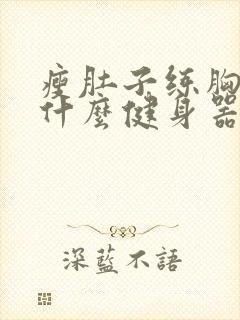 瘦肚子练胸
什麼健身器
深藍不語